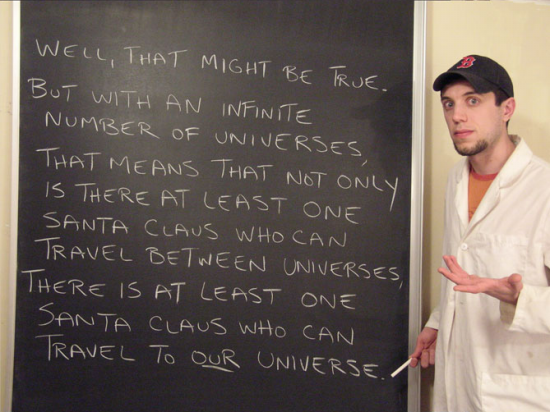 WELL, THAT MIGHT BE TRUE.
BUT WITH AN INFINITE
NUMBER OF UNIVERSES,
THAT MEANS THAT NOT ONLY
IS THERE AT LEAST ONE
SANTA CLAUS WHO CAN
TRAVEL BETWEEN UNIVERSES,
THERE IS AT LEAST ONE
SANTA CLAUS WHO CAN
TRAVEL TO OUR UNIVERSE.
B